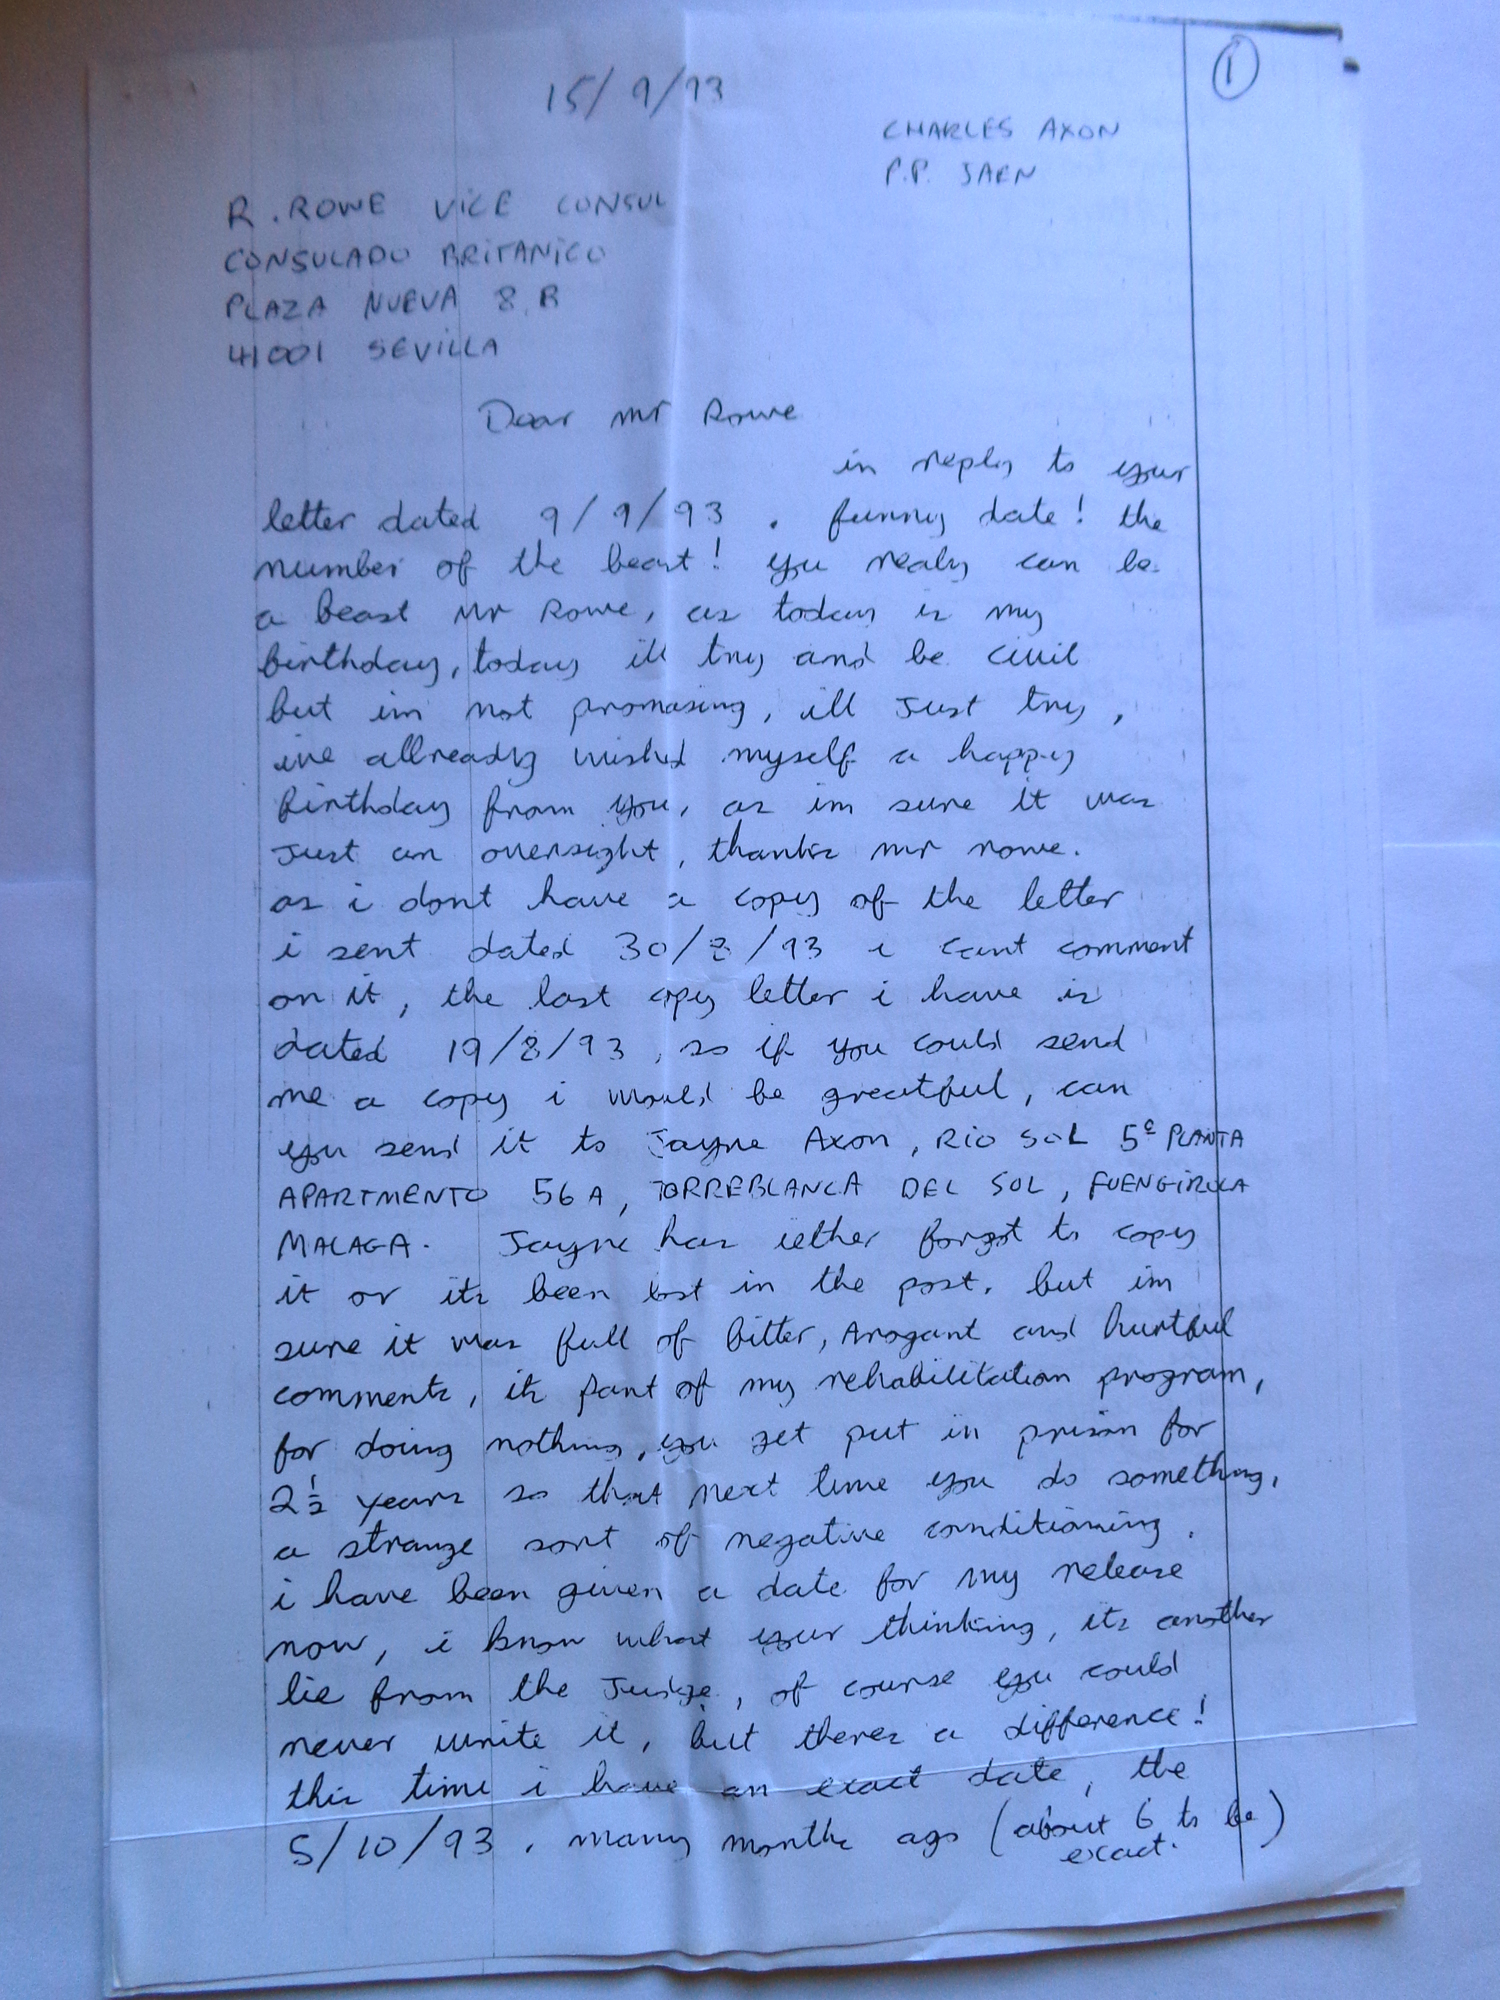 ①
15/9/93
CHARLES AXON
P.P. JAEN
R. ROWE VICE CONSUL
CONSULADO BRITANICO
PLAZA NUEVA 8.B
41001 SEVILLA
Dear Mr Rowe
in reply to your
letter dated 9/9/93. funny date! the
number of the beast! you realy can be
a beast Mr Rowe, as today is my
birthday, today ill try and be civil
but im not promasing, ill Just try,
ive allready wished myself a happy
birthday from you, as im sure it was
Just an oversight, thanks mr rowe.
as i dont have a copy of the letter
i sent dated 30/8/93 i cant comment
on it, the last copy letter i have is
dated 19/8/93, so if you could send
me a copy i would be greatful, can
you send it to Jayne Axon, RIO SOL 5º PLANTA
APARTMENTO 56A, TORREBLANCA DEL SOL, FUENGIROLA
MALAGA. Jayne has iether forgot to copy
it or its been lost in the post. but im
sure it was full of bitter, Arogant and hurtful
comments, its part of my rehabilitation program,
for doing nothing, you get put in prison for
2½ years so that next time you do something,
a strange sort of negative conditioning.
i have been given a date for my release
now, i know what your thinking, its another
lie from the Judge, of course you could
never write it, but theres a difference!
this time i have an exact date, the
5/10/93. many months ago (about 6 to be)
exact.